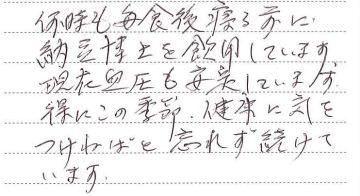 何時も毎食後寝る前に
納豆博士を飲用しています
現在血圧も安定しています.
特にこの季節、健康に気を
つけねばと忘れず続けて
います.